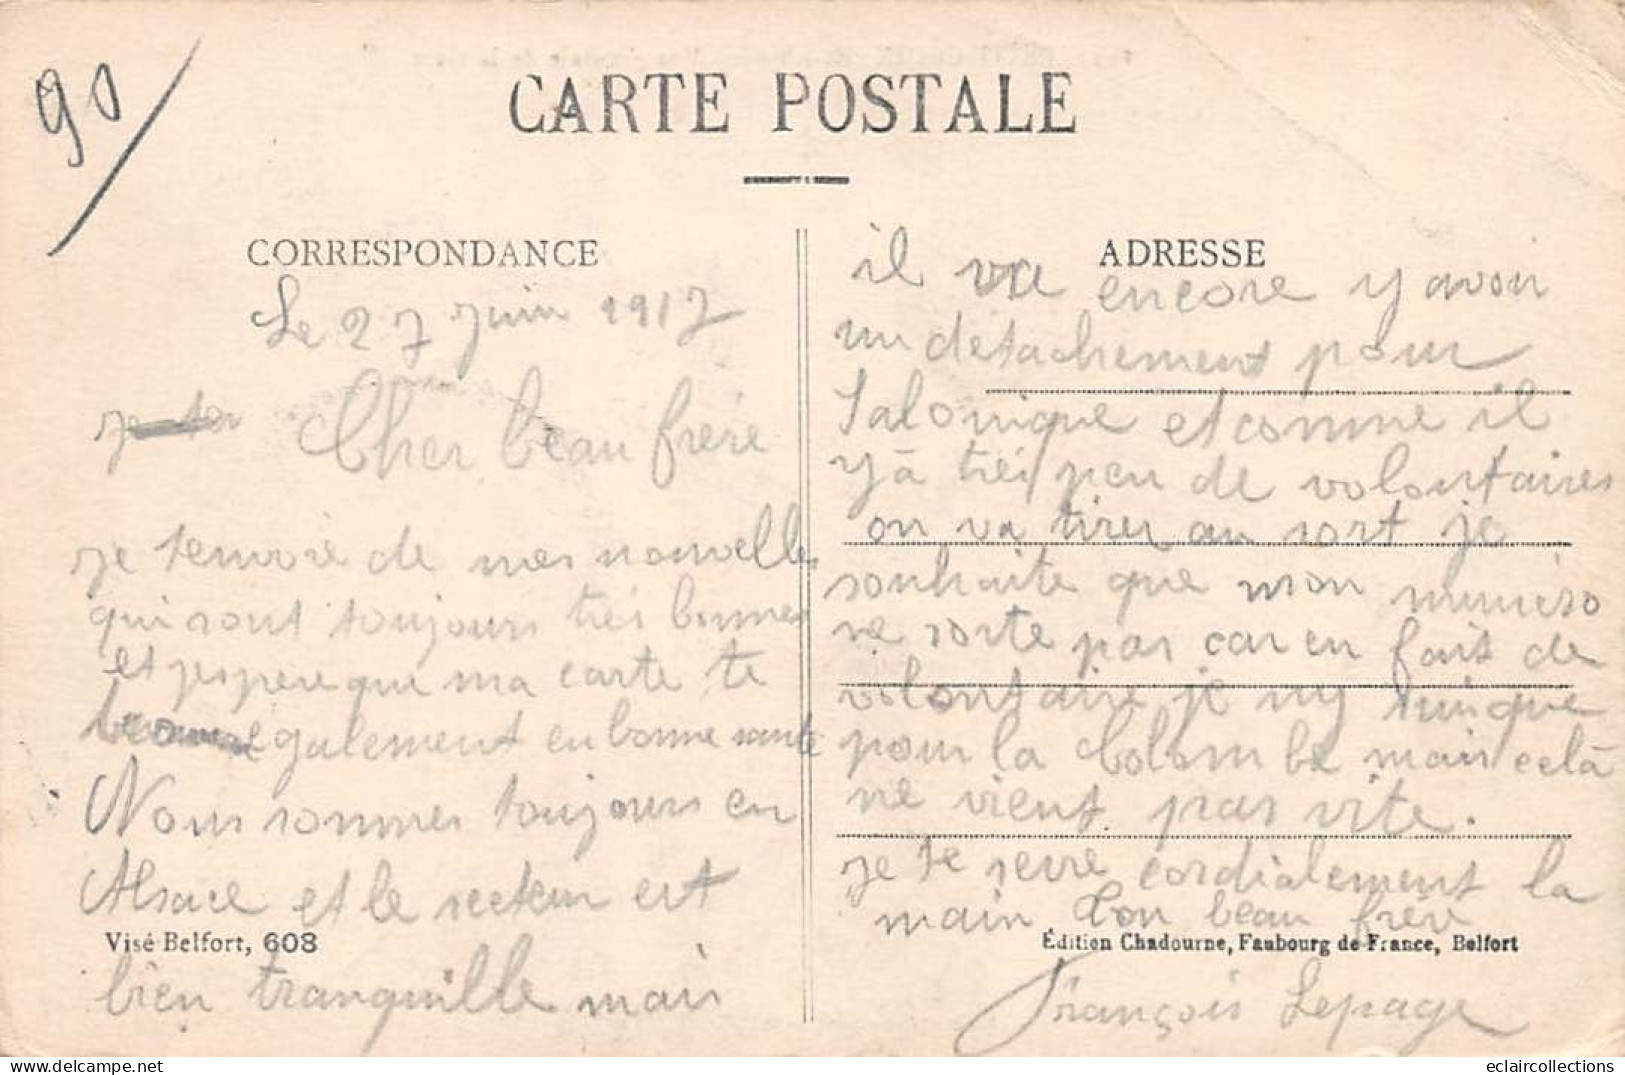 90
CARTE POSTALE
CORRESPONDANCE
Le 27 Juin 1917
Cher beau frère
je tenvoie de mes nouvelles
qui sont toujours très bonnes
et jespere que ma carte te
egalement en bonne santé
Nous sommes toujours en
Alsace et le secteur est
bien tranquille mais
Visé Belfort, 608
ADRESSE
il va encore y avoir
un détachement pour
Salonique et comme il
y à très peu de volontaires
on va tirer au sort je
souhaite que mon numéro
ne sorte pas car en fait de
volontaire je ny suis que
pour la Colombe mais celà
ne vient pas vite.
je te serre cordialement la
main Ton beau frère
Édition Chadourne, Faubourg de France, Belfort
François Lepage
eclaircollections